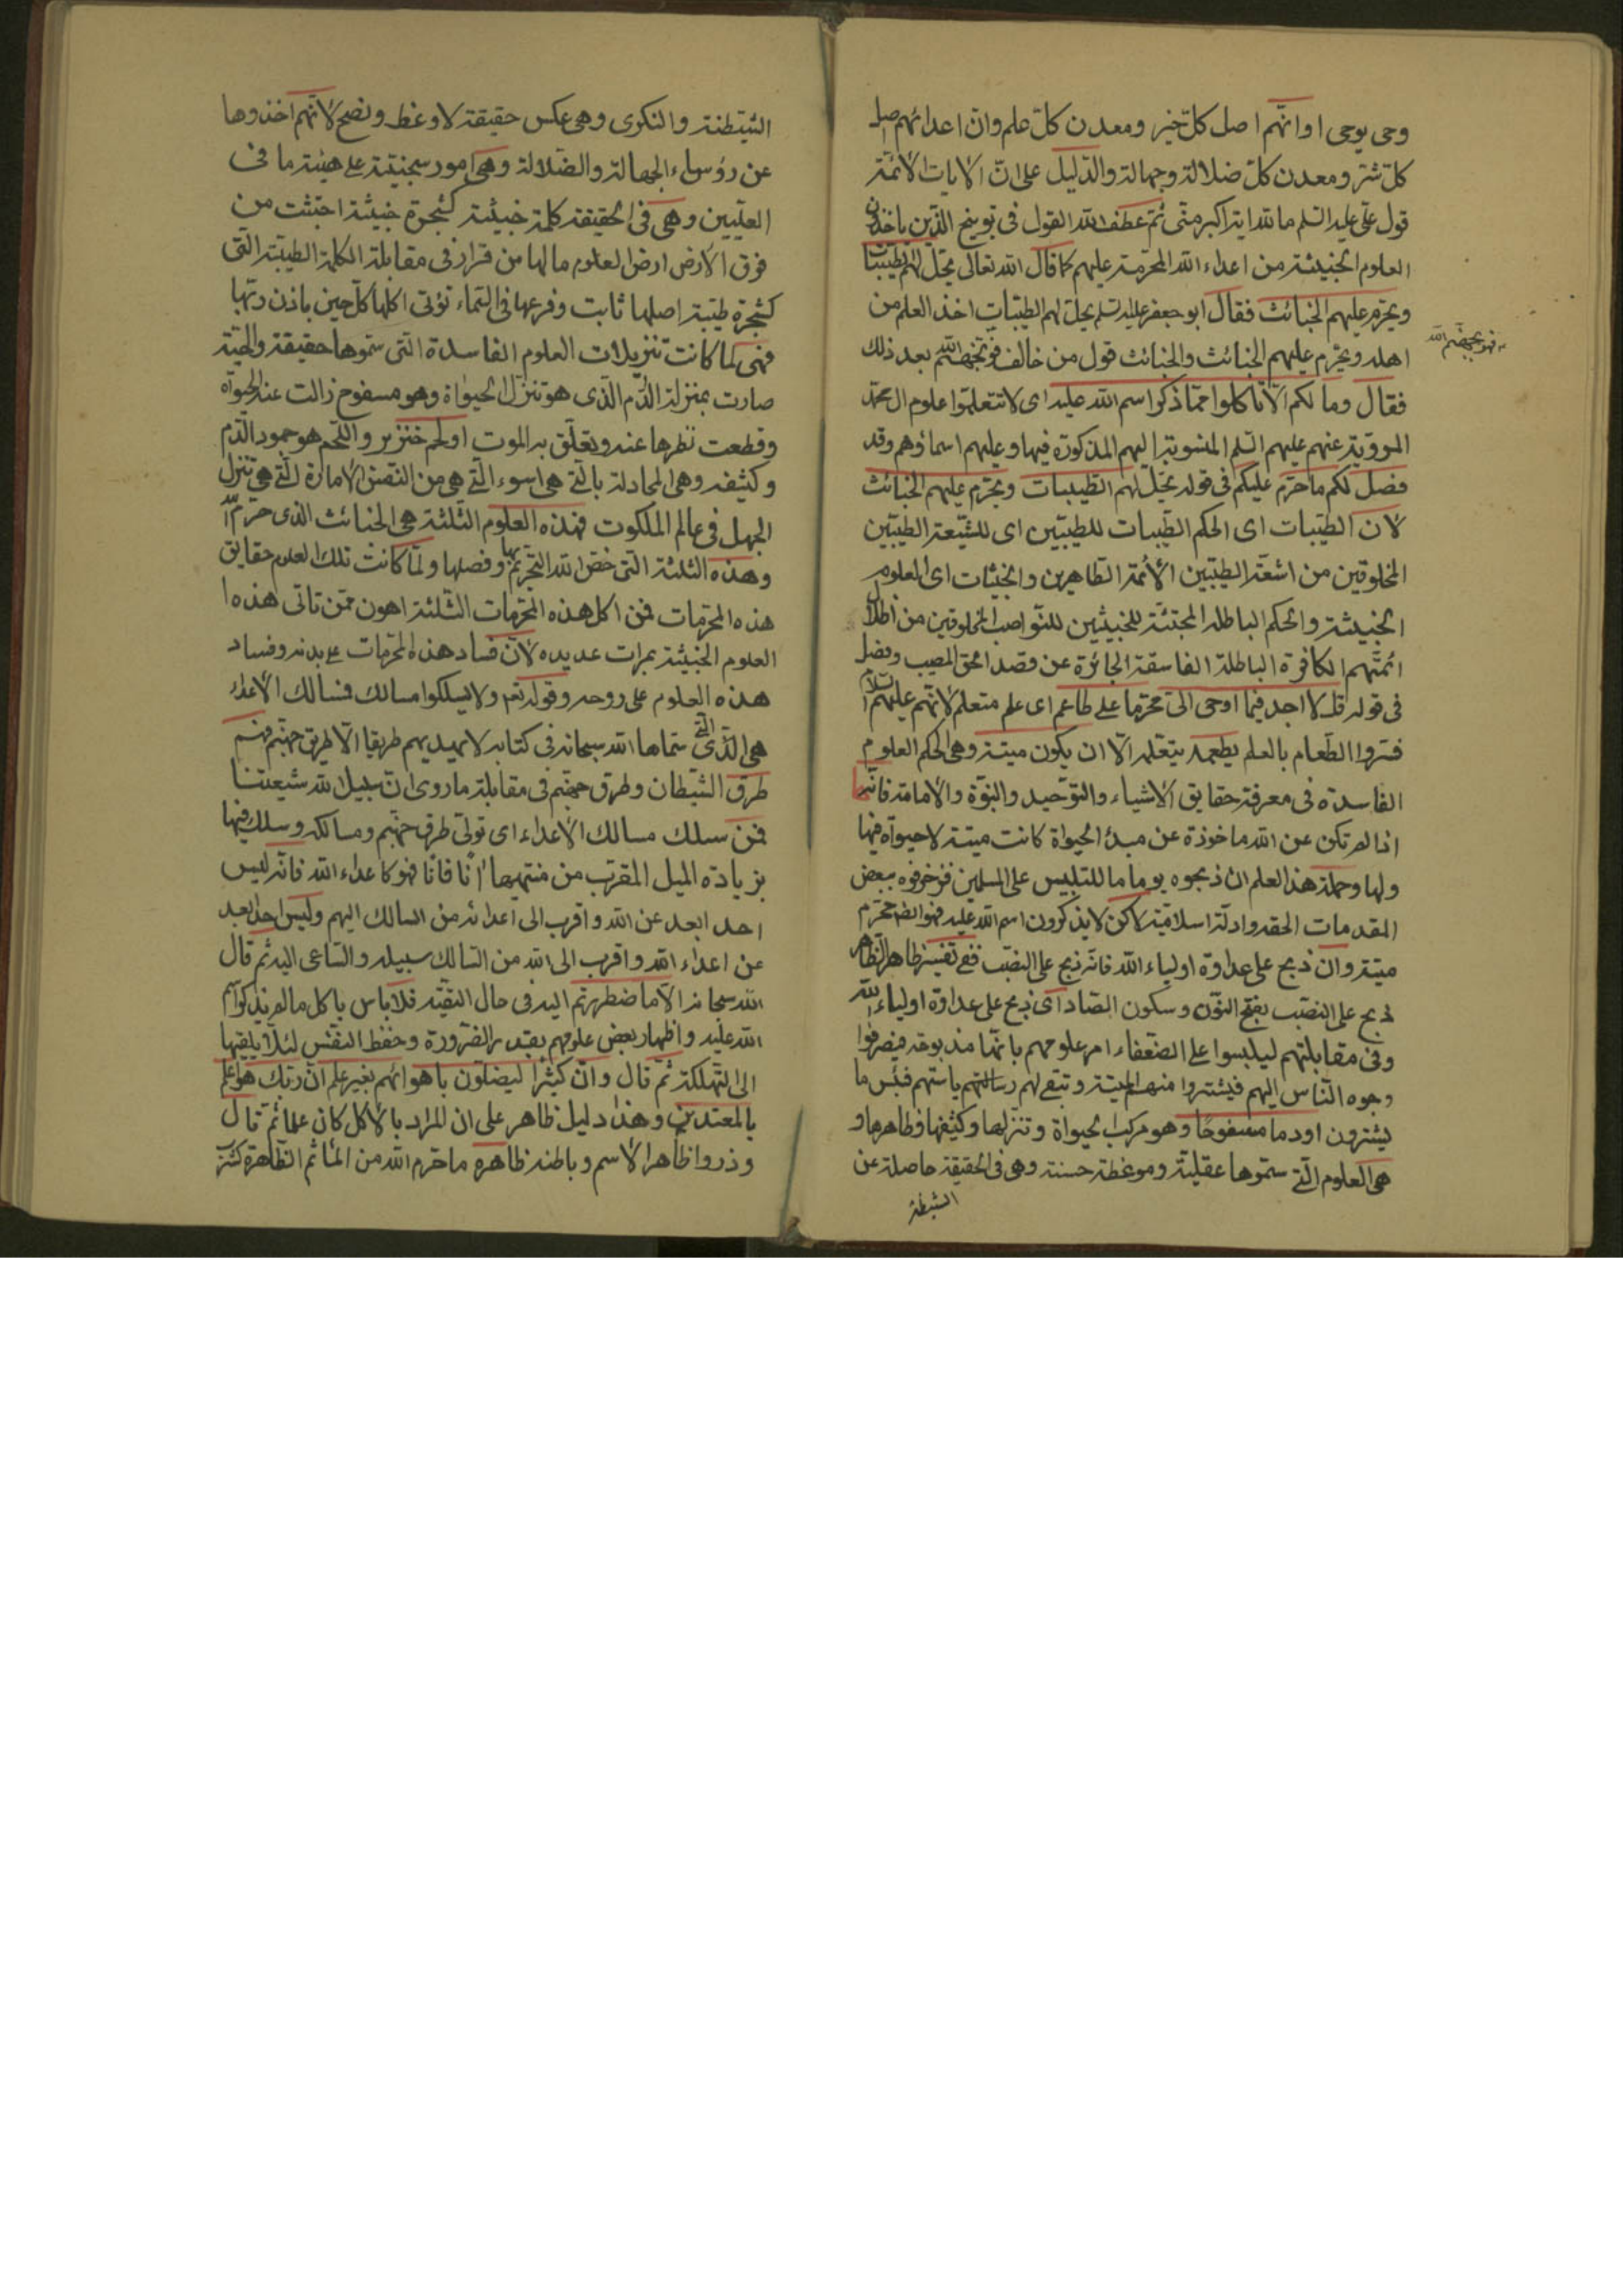 وحى يوحى او انّهم اصل كلّ خير ومعدن كلّ علم وانّ اعدائهم اصل
كلّ شرّ ومعدن كلّ ضلالة وجهالة والدّليل على انّ الايات الائمّة
قول علىّ عليه السّلم ما لله اية اكبر منّى ثمّ عطف الله القول فى توبيخ الّذين ياخذون
العلوم الخبيثة من اعداء الله المحرّمة عليهم كما قال الله تعالى يحلّ لهم الطّيّبات
ويحرّم عليهم الخبائث فقال ابو جعفر عليه السّلم يحلّ لهم الطيّبات اخذ العلم من
اهله ويحرّم عليهم الخبائث والخبائث قول من خالف بعد ذلك
فهو بجهنّم الله
فقال وما لكم الّا تاكلوا ممّا ذكر اسم الله عليه اى لا تتعلّموا علوم ال محمّد
المرويّة عنهم عليهم السّلم المنسوبة اليهم المذكورة فيها وعليهم اسماؤهم وقد
فصّل لكم ما حرّم عليكم فى قوله يحلّ لهم الطّيبات ويحرّم عليهم الخبائث
لانّ الطيّبات اى الحكم الطّيبات للطيبّين اى للشّيعة الطيّبين
المخلوقين من اشعّة الطيّبين الأئمّة الطّاهرين والخبيثات اى العلوم
الخبيثة والحكم الباطلة المجتثّة للخبيثين للنّواصب المخلوقين من اظلال
ائمّتهم الكافرة الباطلة الفاسقة الجائرة عن قصد الحقّ المصيب وفصّل
فى قوله قل لا اجد فيما اوحى الىّ محرّما على طاعم اى على متعلم لانّهم عليهم السّلام
فسّروا الطّعام بالعلم يطعمه يتعلّمه الّا ان يكون ميتة وهى الحكم العلوم
الفاسدة فى معرفة حقايق الاشياء والتوّحيد والنبوّة والامامة فانّها
اذا لم تكن عن الله ماخوذة عن مبدء الحيوة كانت ميتة لا حيوة فيها
ولها وحملة هذا العلم ان ذبحوه يوما ما للتلبيس على المسلمين فزخرفوه ببعض
المقدمات الحقّه وادلّة اسلاميّة لاكن لا يذكرون اسم الله عليه فهو ايضا محرّم
ميتة وان ذبح على عداوة اولياء الله فانّه ذبح على النصب ففى تفسير ظاهر الظّاهر
ذبح على النصب بفتح النّون وسكون الصّاد اى ذبح على عداوة اولياء الله
وفى مقابلتهم ليلبسوا على الضّعفاء امر علومهم بانّها مذبوحة فيصرفوا
وجوه النّاس اليهم فيشتروا منهم الميتة وتبقى لهم رسالتهم ياستهم فبئس ما
يشترون او دما مسفوحًا وهو مركب الحيوة وتنزّلها وكثيفها وظاهرها و
هى العلوم الّتى سمّوها عقليّة وموعظة حسنة وهى فى الحقيقة حاصلة عن
الشيطنة
الشّيطنة والنكرى وهى عكس حقيقة لا وعظ ونصح لانّهم اخذوها
عن رؤساء الجهالة والضّلالة وهى امور سجّينيّة على هيئة ما فى
العلّيين وهى فى الحقيقة كلمة خبيثة كشجرة خبيثة اجتثّت من
فوق الأرض ارض العلوم ما لها من قرار فى مقابلة الكلمة الطيّبة الّتى
كشجرة طيّبة اصلها ثابت وفرعها فى السّماء تؤتى اكلها كلّ حين باذن ربّها
فهى لمّا كانت تنزيلات العلوم الفاسدة الّتى سمّوها حقيقة والميتة
صارت بمنزلة الدّم الّذى هو تنزّل الحيوة وهو مسفوح زالت عنه الحيوة
وقطعت نظرها عنه وتعلّق به الموت او لحم خنزير واللّحم هو جمود الدّم
وكثيفه وهى المجادلة بالّتى هى اسوء الّتى هى من النّفس الامّارة الّتى هى تنزّل
الجهل فى عالم الملكوت فهذه العلوم الثّلثة هى الخبائث الّذى حرّم الله
وهذه الثلثة الّتى خصّ الله التّحريم بها وفصلها ولمّا كانت تلك العلوم حقايق
هذه المحرّمات فمن اكل هذه المحرّمات الثّلثة اهون ممّن تاتى هذه ا
العلوم الخبيثة بمرات عديده لانّ فساد هذه المحرّمات على بدنه وفساد
هذه العلوم على روحه وقوله تعم ولا يسلكوا مسالك فمسالك الأعداء
هى الّذى الّتى سمّاها الله سبحانه فى كتابه لا يهديهم طريقا الّا طريق جهنّم فهم
طرق الشّيطان وطرق جهنّم فى مقابلة ما روى انّ سبيل الله شيعتنا
فمن سلك مسالك الأعداء اى تولّى طرق جهنّم ومسالكه وسلك فيها
بزيادة الميل المقرّب من منتهيها انًا فانًا فهو كاعداء الله فانّه ليس
احد ابعد عن الله واقرب الى اعدائه من السالك اليهم وليس احد ابعد
عن اعداء الله واقرب الى الله من السّالك سبيله والسّاعى اليه ثم قال
الله سبحانه الّا ما اضطررتم اليه فى حال التقيّة فلا باس باكل ما لم يذكر اسم
الله عليه واظهار بعض علومهم بقدر الضّرورة وحفظ النّفس لئلّا يلقيها
الى التّهلكة ثمّ قال وانّ كثيرًا ليضلّون باهوائهم بغير علم انّ ربّك هو اعلم
بالمعتدين وهذا دليل ظاهر على ان المراد بالاكل كان علما ثمّ قال
وذروا ظاهر الاسم وباطنه ظاهره ما حرّم الله من المأثم الظّاهرة كشرب